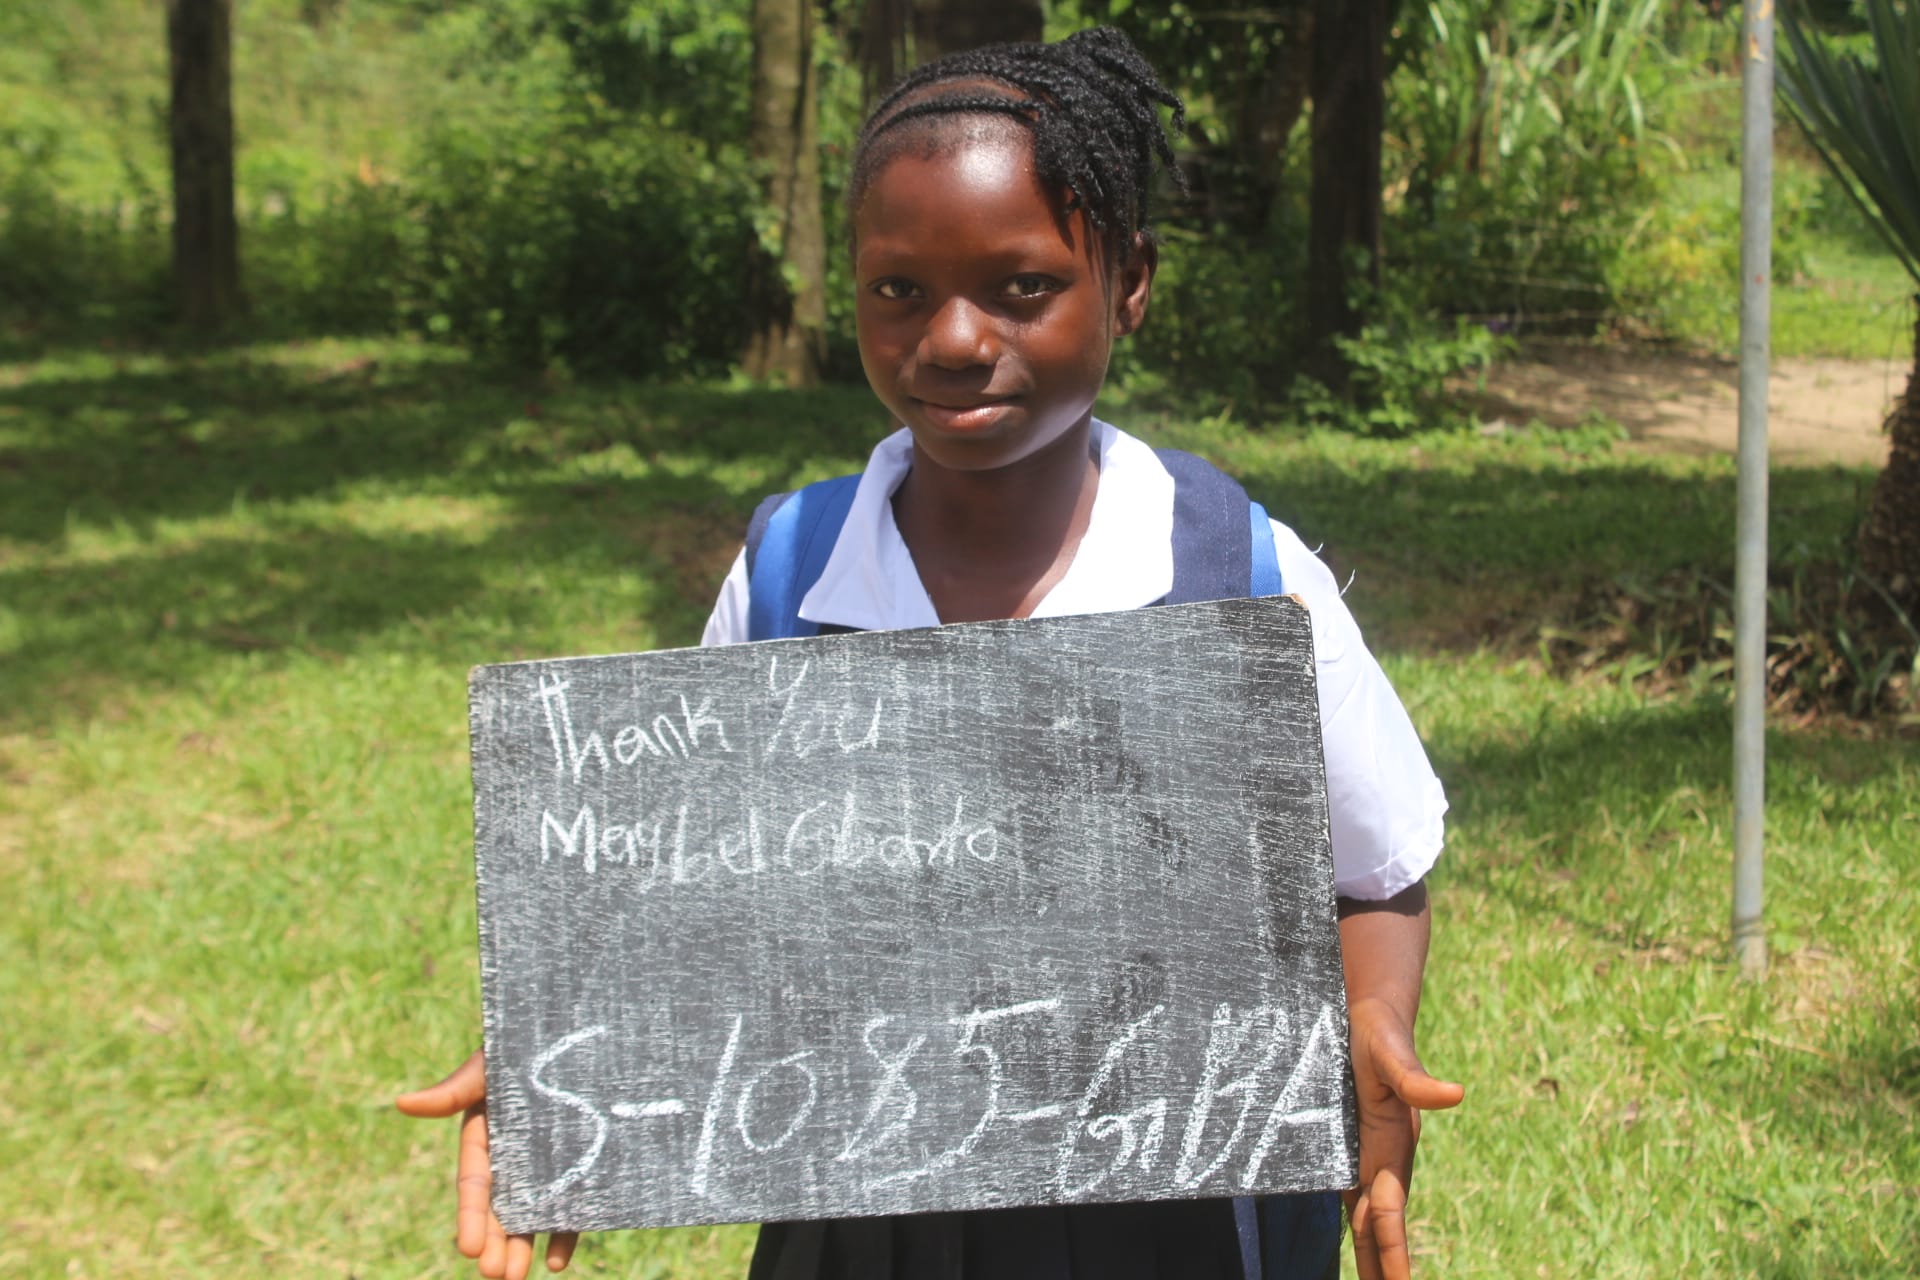 Thank You
Maybel Gbarto
S-1085-GBA